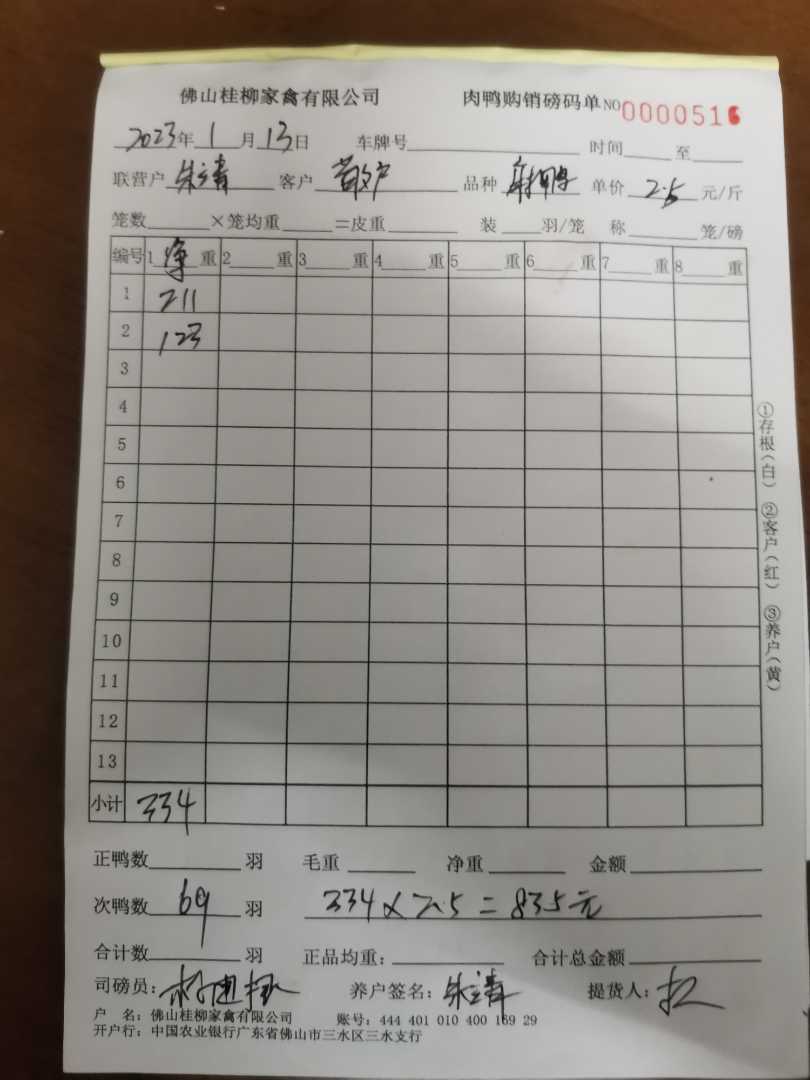 佛山桂柳家禽有限公司 肉鸭购销磅码单 NO 0000516
2023年 1 月 13日 车牌号 时间 至
联营户 朱立青 客户 散户 品种 单价 2.5 元/斤
笼数 ×笼均重 =皮重 装 羽/笼 称 笼/磅
编号 1 净 重 2 重 3 重 4 重 5 重 6 重 7 重 8 重
1 211
2 123
3
4
5
6
7
8
9
10
11
12
13
小计 334
①存根(白) ②客户(红) ③养户(黄)
正鸭数 羽 毛重 净重 金额
次鸭数 69 羽 334×2.5=835元
合计数 羽 正品均重: 合计总金额
司磅员: 养户签名: 朱立青 提货人:
户 名: 佛山桂柳家禽有限公司 账号: 444 401 010 400 169 29
开户行: 中国农业银行广东省佛山市三水区三水支行